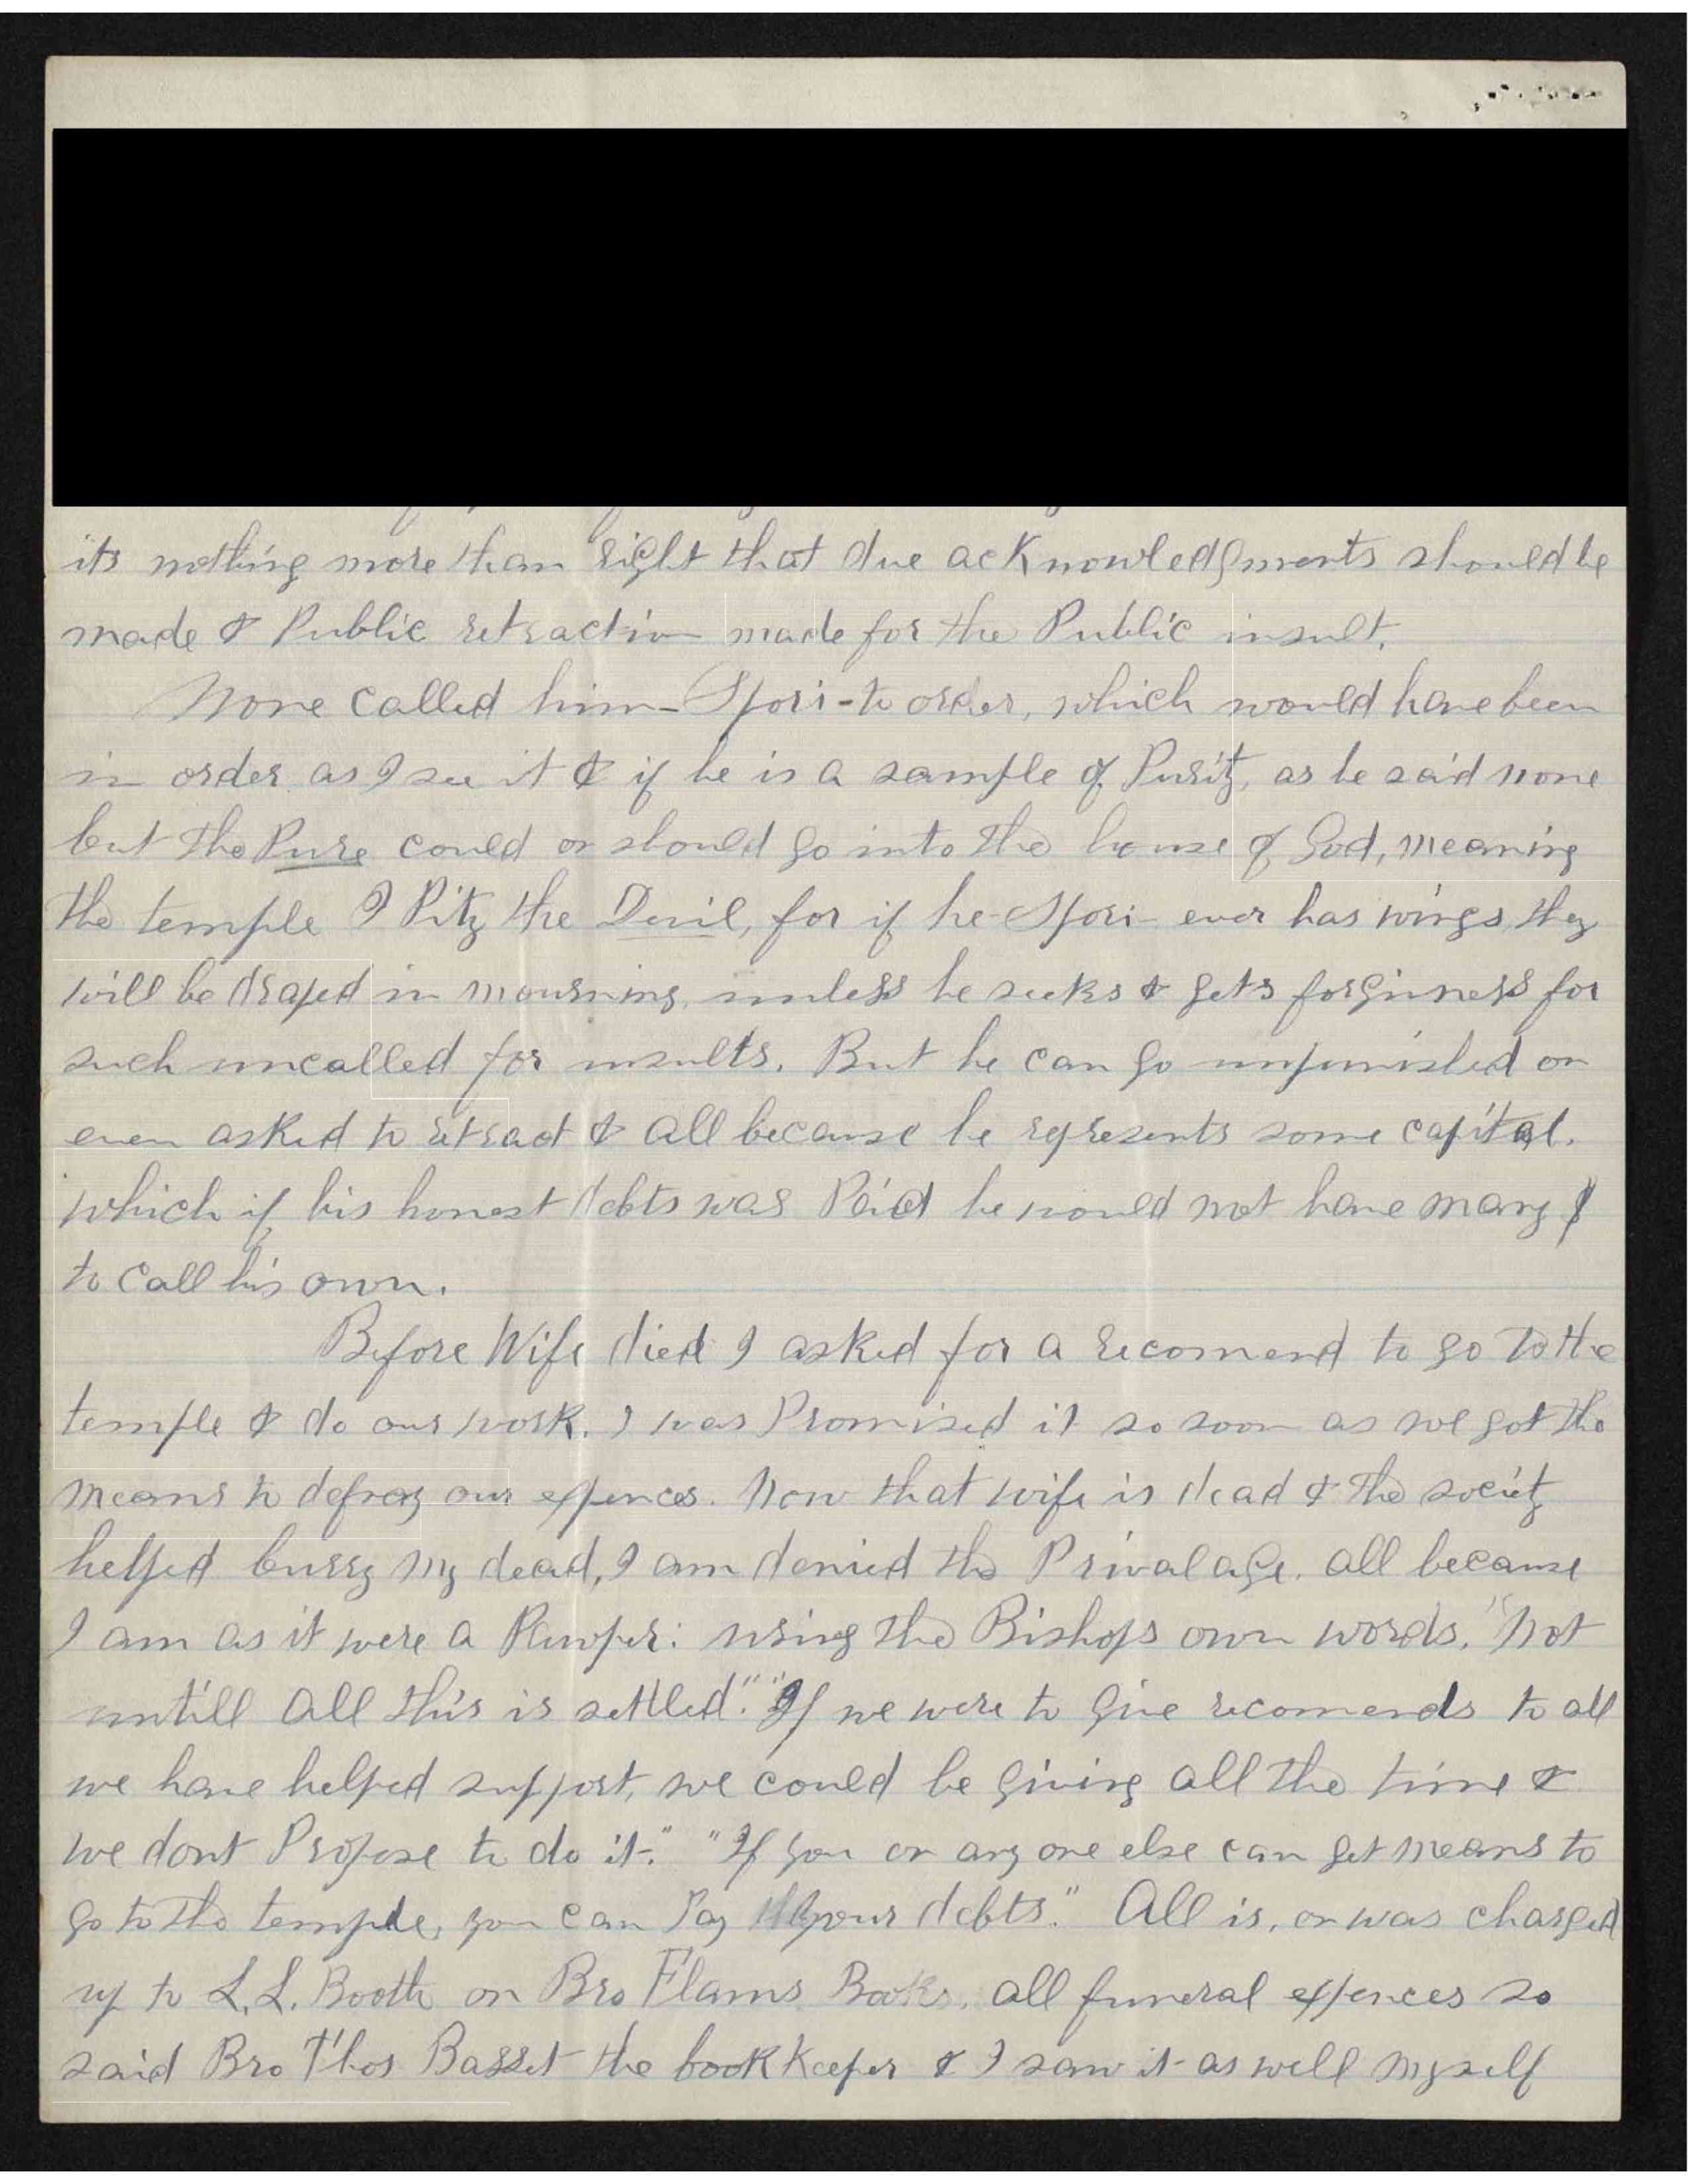 its nothing more than right that due acknowledgments should be
made & Public retraction made for the Public insult.
None called him - Spori - to order, which would have been
in order as I see it & if he is a sample of Purity, as he said none
but the Pure could or should go into the house of God, meaning
the temple I Pity the Devil, for if he - Spori - ever has wings they
will be draped in mourning, unless he seeks & gets forgivness for
such uncalled for insults. But he can go unpunished or
even asked to retract & all because he represents some capital.
which if his honest debts was Paid he would not have many $
to call his own.
Before Wife died I asked for a recomend to go to the
temple & do our work. I was Promised it so soon as we got the
means to defray our expences. Now that wife is dead & the society
helped burry my dead, I am denied the Privalage. all because
I am as it were a Pauper: using the Bishops own words. "Not
untill all this is settled". "If we were to give recomends to all
we have helped support, we could be giving all the time &
we dont Propose to do it." "If you or any one else can get means to
go to the temple, you can Pay your debts." All is, or was charged
up to L. L. Booth on Bro Flams Books, all funeral expences so
said Bro Thos Basset the book keeper & I saw it as well myself